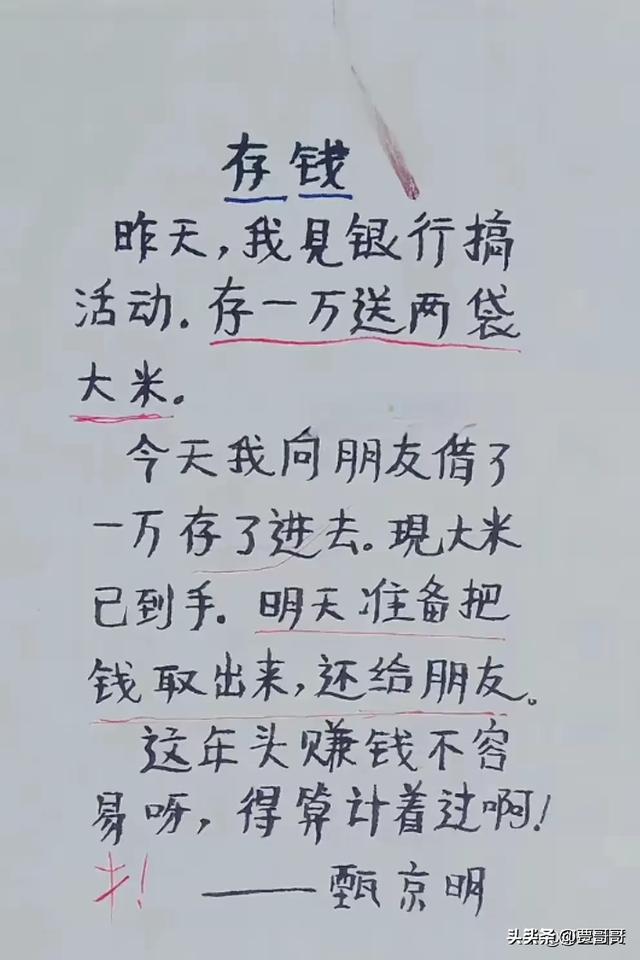 存钱
昨天,我見银行搞
活动.存一万送两袋
大米。
今天我向朋友借了
一万存了进去。現大米
已到手.明天准备把
钱取出来,还给朋友。
这年头赚钱不容
易呀,得算计着过啊!
——甄京明
头条 @贾哥哥